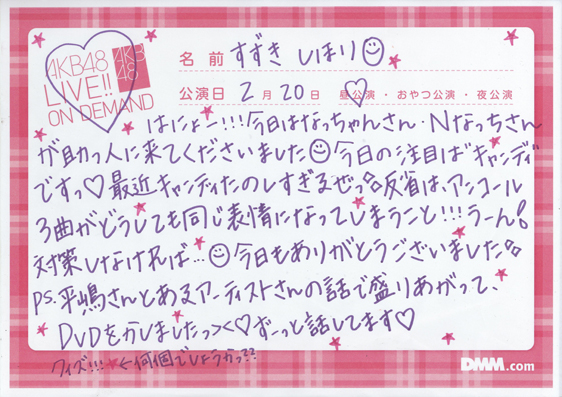 AKB48
LIVE!!
ON DEMAND
AKB
48
名前 すずき しほり
公演日 2月20日 昼公演・おやつ公演・夜公演
はにょー!!!今日はなっちゃんさん・Nなっちさん
が助っ人に来てくださいました 今日の注目は"キャンディ"
ですっ♡最近キャンディたのしすぎるぜっ 反省は、アンコール
3曲がどうしても同じ表情になってしまうこと!!!うーん!
対策しなければ… 今日もありがとうございました
PS.平嶋さんとあるアーティストさんの話で盛りあがって、
DVDをかしましたっ><♡ずーっと話してます♡
クイズ!!!★←何個でしょうかっ??
DMM.com